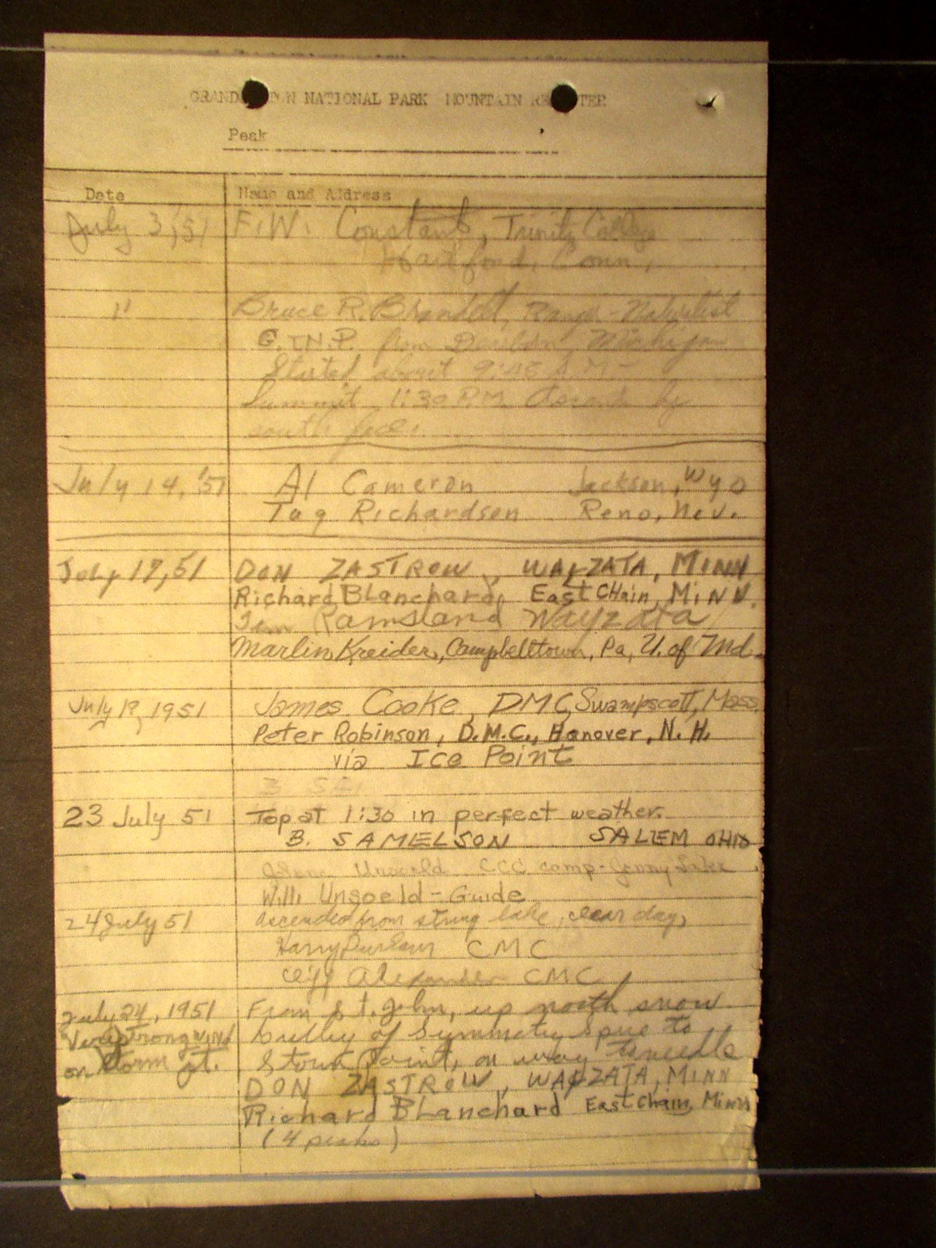 GRAND TETON NATIONAL PARK MOUNTAIN REGISTER
Peak
Date Name and Address
July 3, '51 F.W. Constant, Trinity College
Hartford, Conn.
" Bruce R. Ranger-Naturalist
G.T.N.P. from Michigan
Started about 9:45 A.M.
Summit 1:30 P.M. by
south face.
July 14, '51 Al Cameron Jackson, Wyo
Tug Richardson Reno, Nev.
July 17, 51 DON ZASTROW, WAYZATA, MINN
Richard Blanchard, East Chain, Minn.
Ramsland Wayzata
Marlin Kreider, Campbelltown, Pa, U. of Md.
July 1951 James Cooke, DMC, Swampscott, Mass.
Peter Robinson, D.M.C., Hanover, N.H.
via Ice Point
23 July 51 Top at 1:30 in perfect weather.
B. SAMELSON SALEM OHIO
Unsoeld CCC camp-Jenny Lake
Willi Unsoeld-Guide
24 July 51 ascended from string lake, clear day,
Harry CMC
Cliff Alexander CMC
July 24, 1951 From St. John, up north snow
Very strong wind of Symmetry Spire to
on Storm Pt. Storm Point, on way
DON ZASTROW, WAYZATA, MINN
Richard Blanchard East Chain, Minn
(4 peaks)